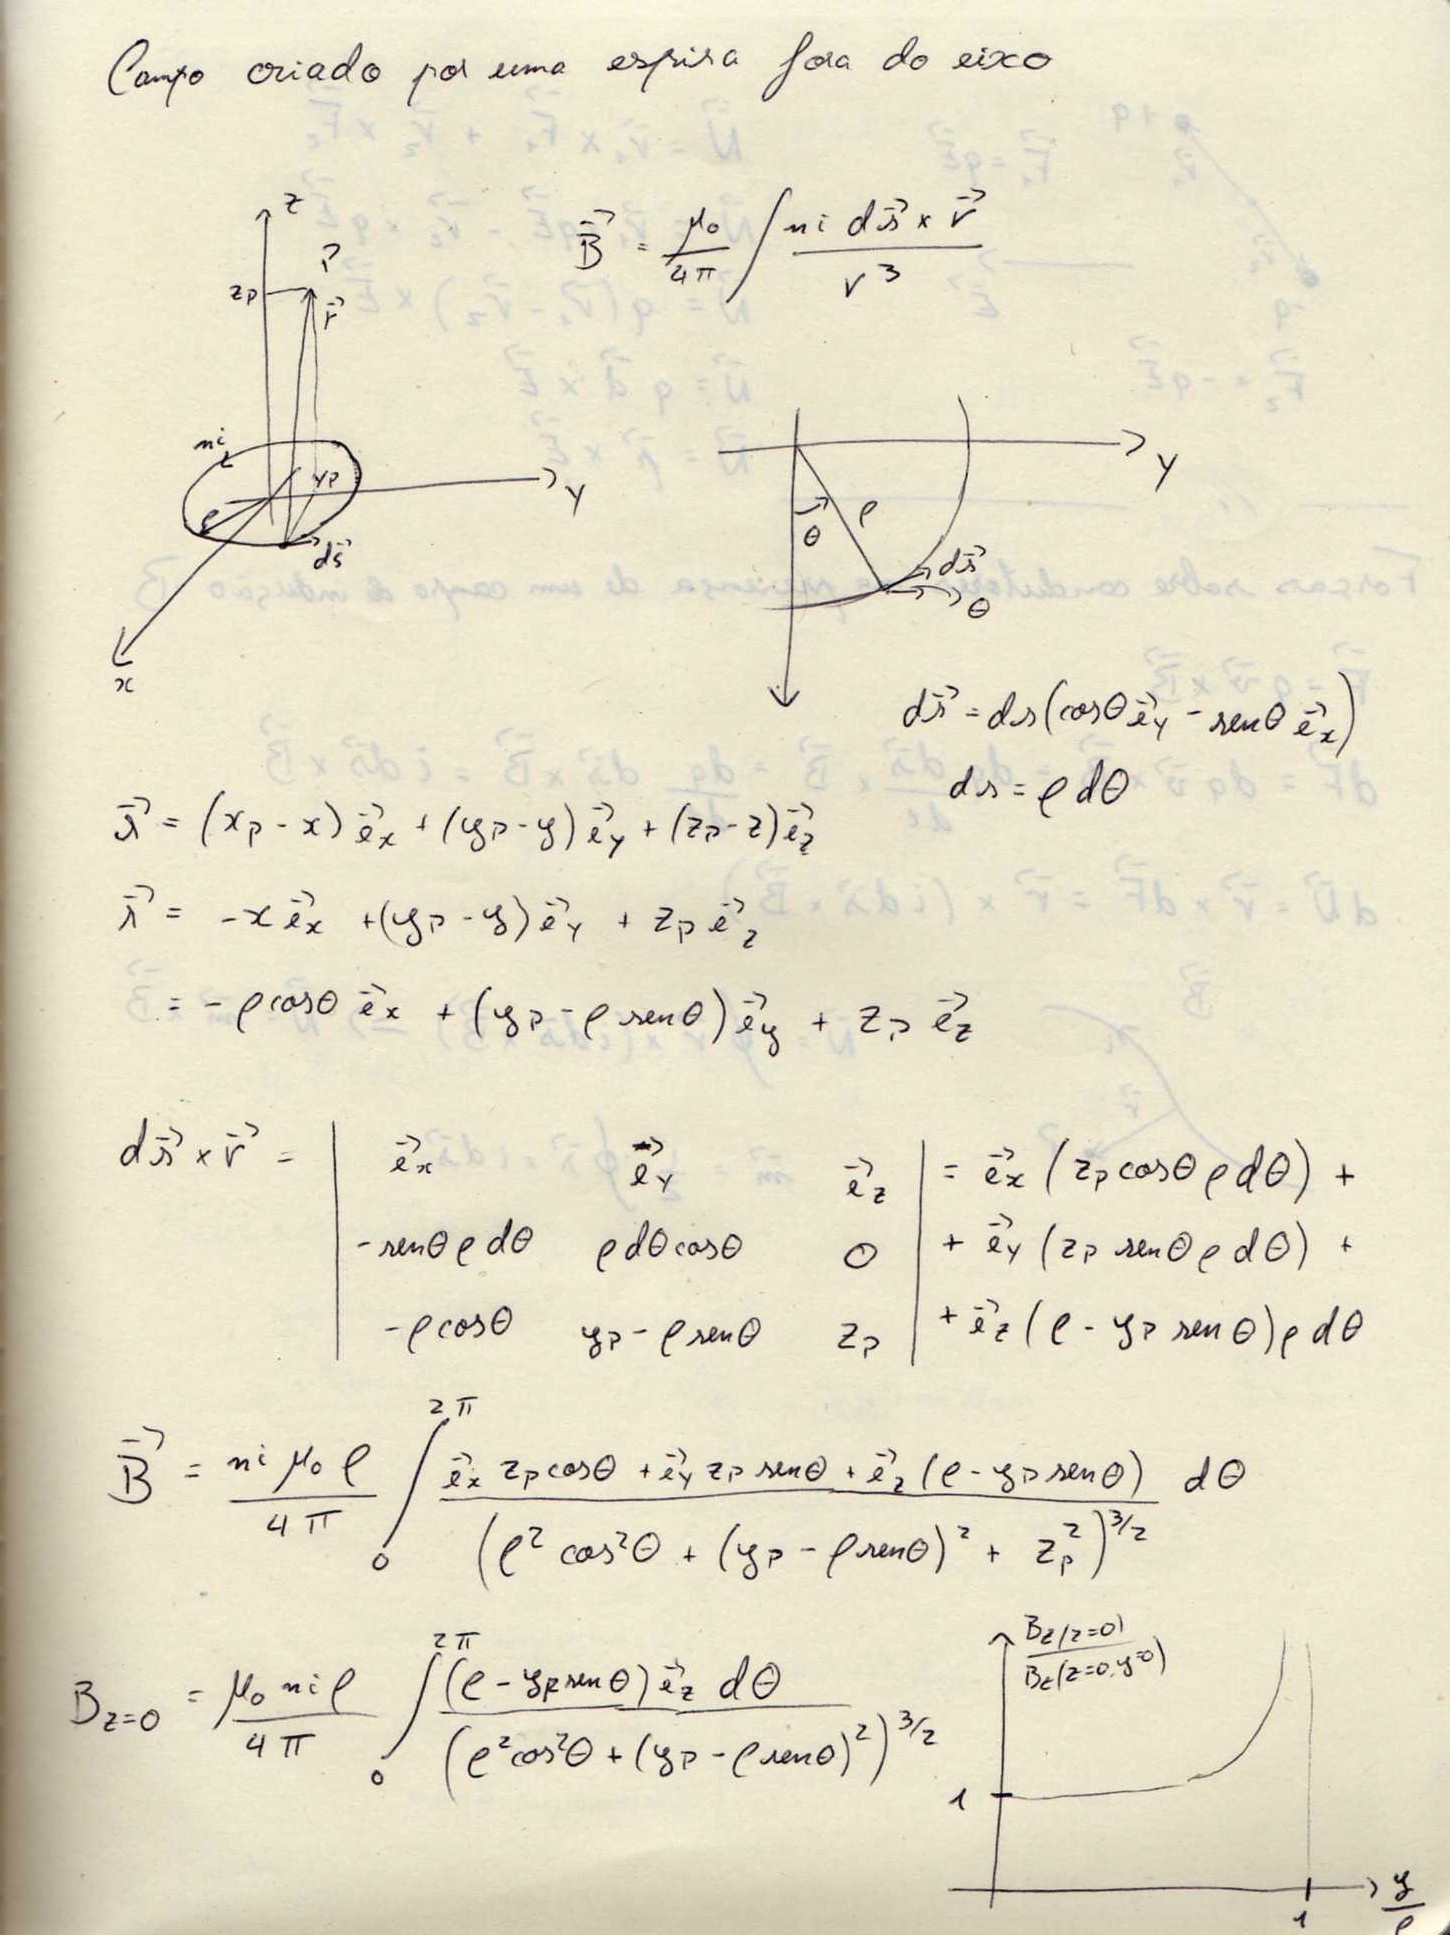 Campo criado por uma espira fora do eixo
z
P
zp
r⃗
ni
yp
ρ
y
ds⃗
x
B⃗ = μ₀/4π ∫ ni ds⃗ × r⃗ / r³
y
θ
ρ
ds⃗
θ
ds⃗ = ds(cosθ e⃗y - senθ e⃗x)
ds = ρ dθ
r⃗ = (xp - x) e⃗x + (yp - y) e⃗y + (zp - z) e⃗z
r⃗ = -x e⃗x + (yp - y) e⃗y + zp e⃗z
= -ρ cosθ e⃗x + (yp - ρ senθ) e⃗y + zp e⃗z
ds⃗ × r⃗ = | e⃗x e⃗y e⃗z | = e⃗x (zp cosθ ρ dθ) +
-senθ ρ dθ ρ dθ cosθ 0 + e⃗y (zp senθ ρ dθ) +
-ρ cosθ yp - ρ senθ zp + e⃗z (ρ - yp senθ) ρ dθ
B⃗ = ni μ₀ ρ / 4π ∫₀^2π e⃗x zp cosθ + e⃗y zp senθ + e⃗z (ρ - yp senθ) / (ρ² cos²θ + (yp - ρ senθ)² + zp²)^3/2 dθ
B z=0 = μ₀ ni ρ / 4π ∫₀^2π (ρ - yp senθ) e⃗z dθ / (ρ² cos²θ + (yp - ρ senθ)²)^3/2
Bz(z=0)
Bz(z=0,y=0)
1
1
y/ρ